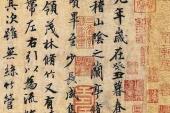 九年歲在癸丑暮春
稽山陰之蘭亭脩
畢至少長咸
領茂林脩竹又有
帶左右引以為流
其次雖無絲竹管